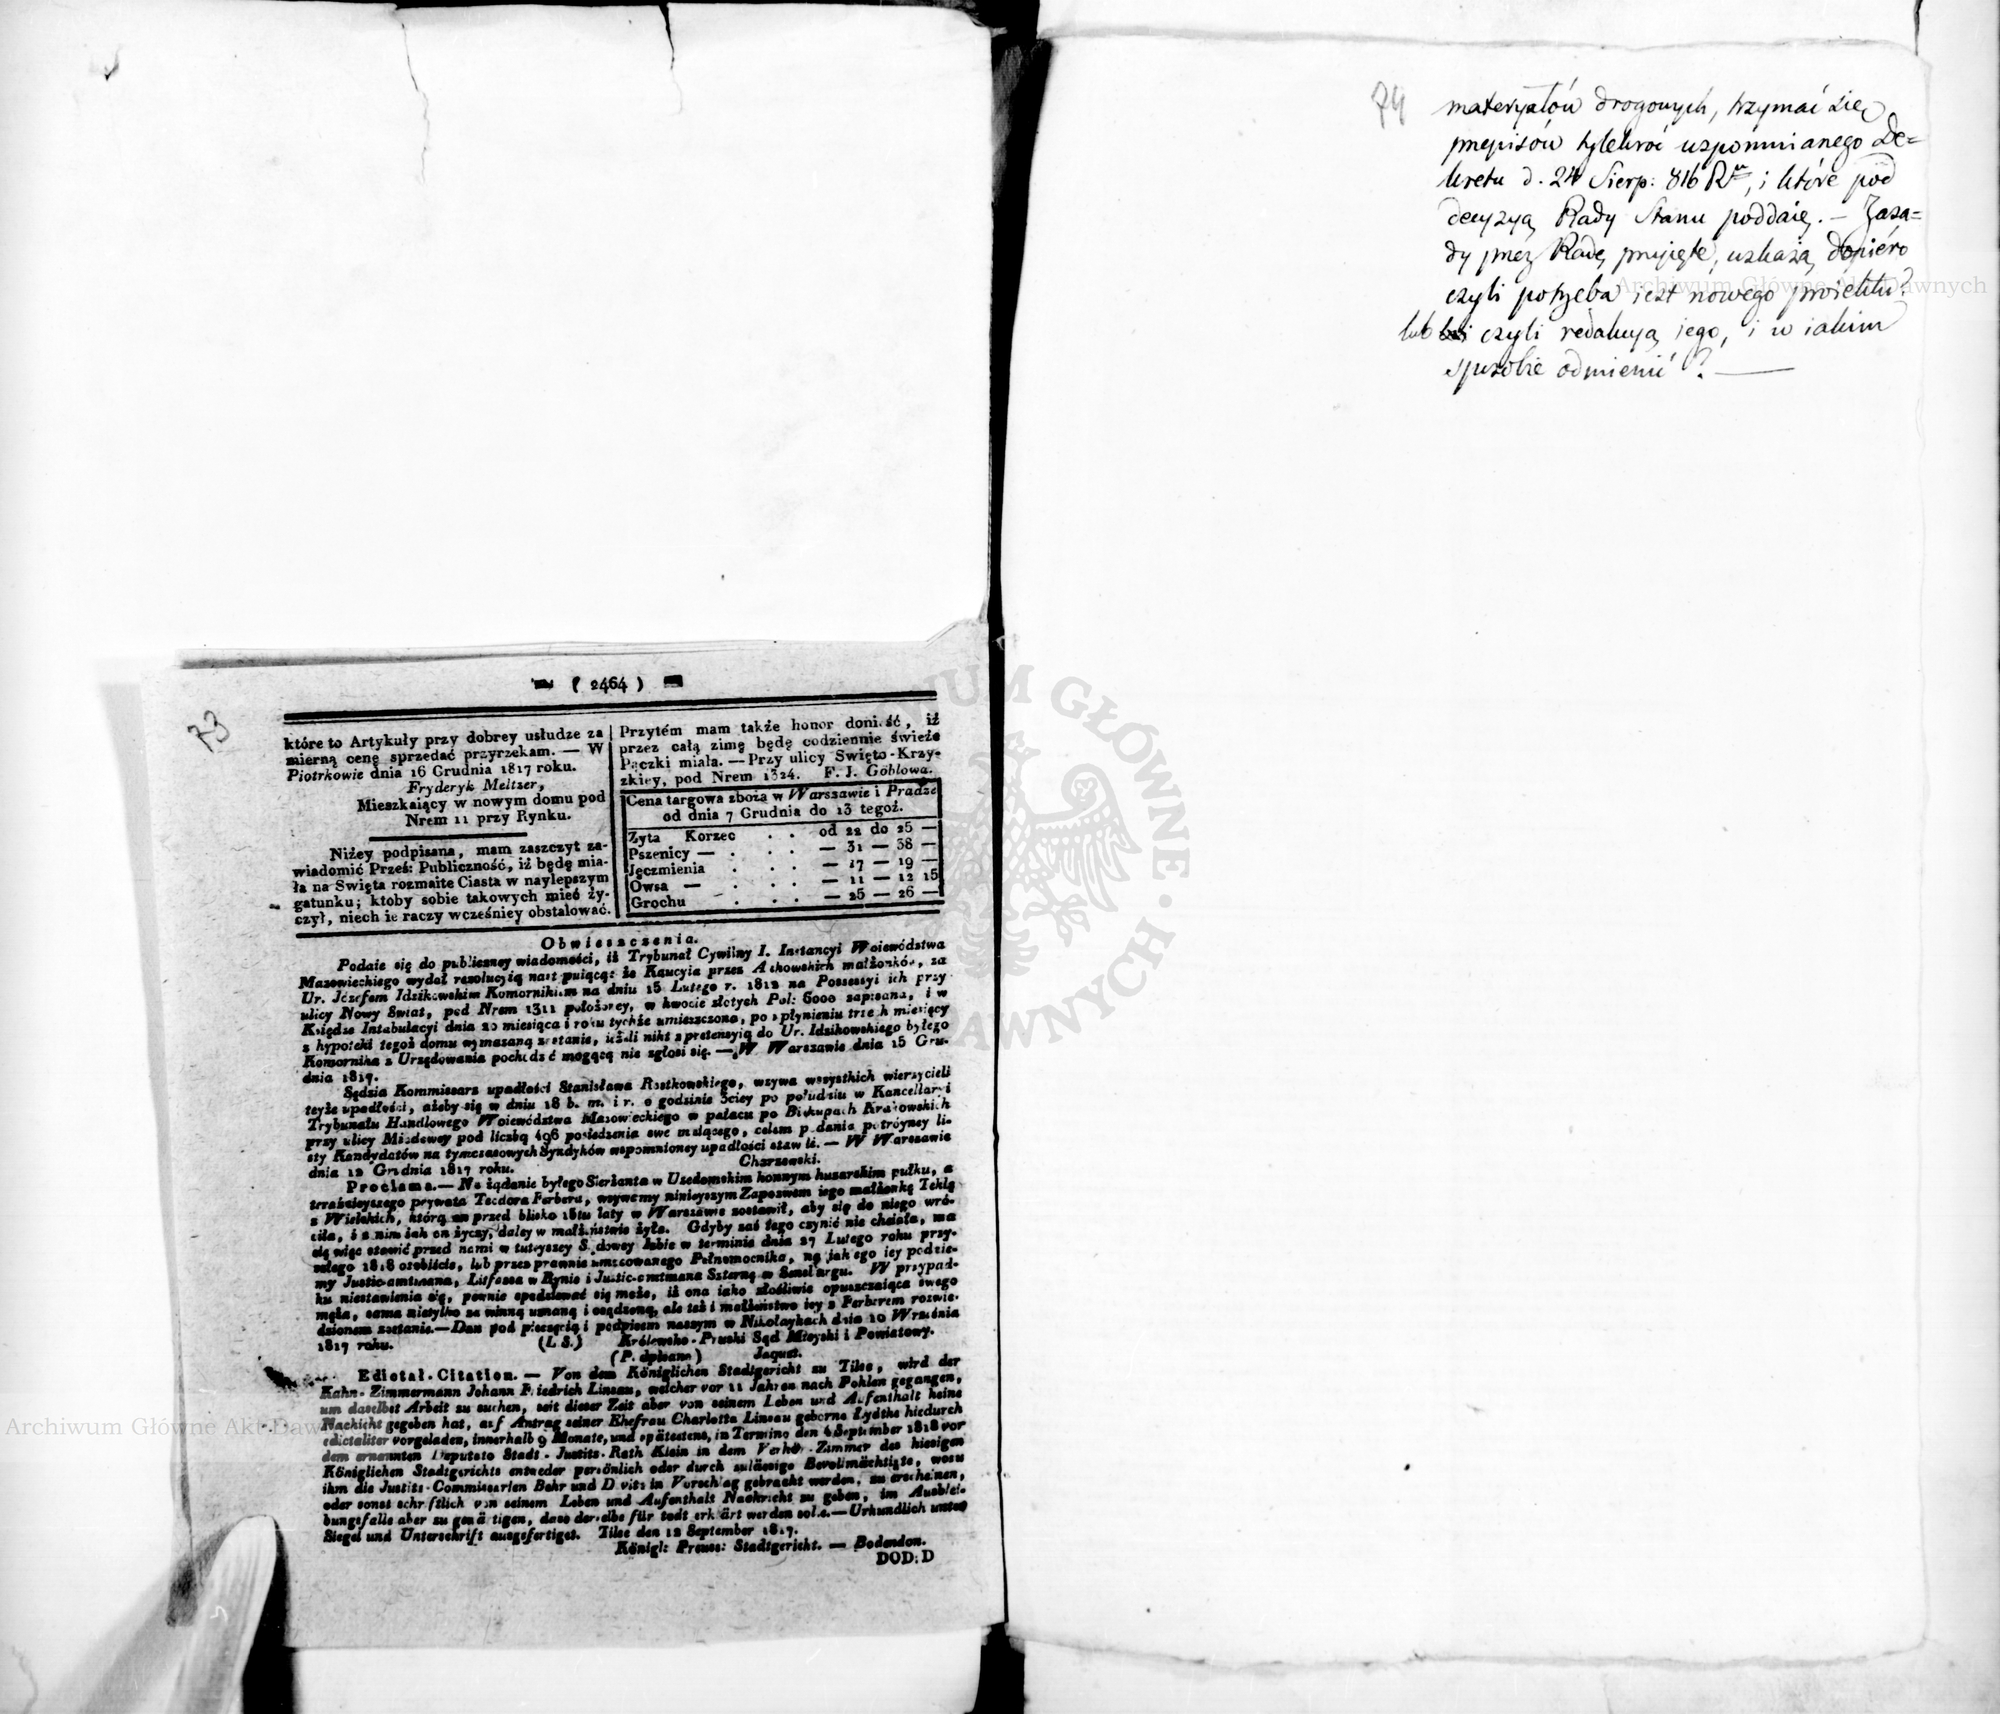 73
( 2464 )
które to Artykuły przy dobrey usłudze za
mierną cenę sprzedać przyrzekam. — W
Piotrkowie dnia 16 Grudnia 1817 roku.
Fryderyk Meltzer,
Mieszkaiący w nowym domu pod
Nrem 11 przy Rynku.
Niżey podpisana, mam zaszczyt za-
wiadomić Prześ: Publiczność, iż będę mia-
ła na Swięta rozmaite Ciasta w naylepszym
gatunku; ktoby sobie takowych mieć ży-
czył, niech ie raczy wcześniey obstalować.
Przytém mam także honor donieść, iż
przez całą zimę będę codziennie świeże
Pączki miała. — Przy ulicy Swięto-Krzy-
zkiey, pod Nrem 1324. F. J. Göblowa.
Cena targowa zboża w Warszawie i Pradze
od dnia 7 Grudnia do 13 tegoż.
Zyta Korzec . . od 22 do 25 —
Pszenicy — . . . — 31 — 38 —
Jęczmienia . . . — 17 — 19 —
Owsa — . . . — 11 — 12 15
Grochu . . . — 25 — 26 —
Obwieszczenia.
Podaie się do publiczney wiadomości, iż Trybunał Cywilny I. Instancyi Woiewództwa
Mazowieckiego wydał rezolucyią nast puiącą: że Kaucyia przez małżonków, za
Ur. Józefem Idzikowskim Komornikiem na dniu 15 Lutego r. 1812 na Possessyi ich przy
ulicy Nowy Swiat, pod Nrem 1311 położoney, w kwocie złotych Pol: 6000 zapisana, i w
Księdze Intabulacyi dnia 20 miesiąca i roku tychże umieszczona, po upłynieniu trzech miesięcy
z hypoteki tegoż domu wymazaną zostanie, ieżeli nikt z pretensyią do Ur. Idzikowskiego byłego
Komornika z Urzędowania pochodzić mogącą nie zgłosi się. — W Warszawie dnia 15 Gru-
dnia 1817.
Sędzia Kommissarz upadłości Stanisława Rostkowskiego, wzywa wszystkich wierzycieli
teyże upadłości, ażeby się w dniu 18 b. m. i r. o godzinie 3ciey po południu w Kancellaryi
Trybunału Handlowego Woiewództwa Mazowieckiego w pałacu po Biskupach Krakowskich
przy ulicy Miodowey pod liczbą 496 posiedzenia swe maiącego, celem podania potróyney li-
sty Kandydatów na tymczasowych Syndyków wspomnioney upadłości stawili. — W Warszawie
dnia 12 Grudnia 1817 roku. Charzewski.
Proclama. — Na żądanie byłego Sierżanta w Usedomskim konnym huzarskim pułku, a
teraźnieyszego prywata Teodora Ferbera, wzywamy ninieyszym Zapozwem iego małżonkę Teklę
z Wielskich, którą on przed blisko 18tu laty w Warszawie zostawił, aby się do niego wró-
ciła, i z nim iak on życzy, daley w małżeństwie żyła. Gdyby zaś tego czynić nie chciała, ma
się więc stawić przed nami w tuteyszey Sądowey Izbie w terminie dnia 27 Lutego roku przy-
szłego 1818 osobiście, lub przez prawnie umocowanego Pełnomocnika, na iakiego iey podaie-
my Justic-amtmana, Litfassa w Rynie i Justic-amtmana Szterna w Sensburgu. W przypad-
ku niestawienia się, pewnie spodziewać się może, iż ona iako złośliwie opuszczaiąca swego
męża, sama nietylko za winną uznaną i osądzoną, ale też i małżeństwo iey z Ferberem rozwie-
dzionem zostanie. — Dan pod pieczęcią i podpisem naszym w Nikolaykach dnia 10 Września
1817 roku. (L S.) Królewsko-Pruski Sąd Mieyski i Powiatowy.
(Podpisano) Jaquet.
Edictal-Citation. — Von dem Königlichen Stadtgericht zu Tilse, wird der
Kahn-Zimmermann Johann Friedrich Linsau, welcher vor 11 Jahren nach Pohlen gegangen,
um daselbst Arbeit zu suchen, seit dieser Zeit aber von seinem Leben und Aufenthalt keine
Nachicht gegeben hat, auf Antrag seiner Ehefrau Charlotta Linsau geborne Lydthe hiedurch
edictaliter vorgeladen, innerhalb 9 Monate, und spätestens, in Termino den 4 September 1818 vor
dem ernannten Deputato Stadt-Justitz-Rath Klein in dem Verhör-Zimmer des hiesigen
Königlichen Stadtgerichts entweder persönlich oder durch zulässige Bevollmächtigte, wozu
ihm die Justitz-Commissarien Behr und Dvits in Vorschlag gebracht werden, zu erscheinen,
oder sonst schriftlich von seinem Leben und Aufenthalt Nachricht zu geben, im Ausblei-
bungsfalle aber zu gewärtigen, dass derselbe für todt erklärt werden solle. — Urkundlich unter
Siegel und Unterschrift ausgefertiget. Tilse den 12 September 1817.
Königl: Preuss: Stadtgericht. — Bodendon.
DOD: D
74
materyałów drogowych, trzymać się
przepisów tylekroć wspomnianego De=
kretu d. 24 Sierp: 816 R, i które pod
decyzyą Rady Stanu poddaię. — Zasa=
dy przez Radę przyjęte, wskażą dopiéro
czyli potrzeba iest nowego proiektu?
lub czyli redakcyą iego, i w iakim
sposobie odmienić? —
Archiwum Główne Akt Dawnych